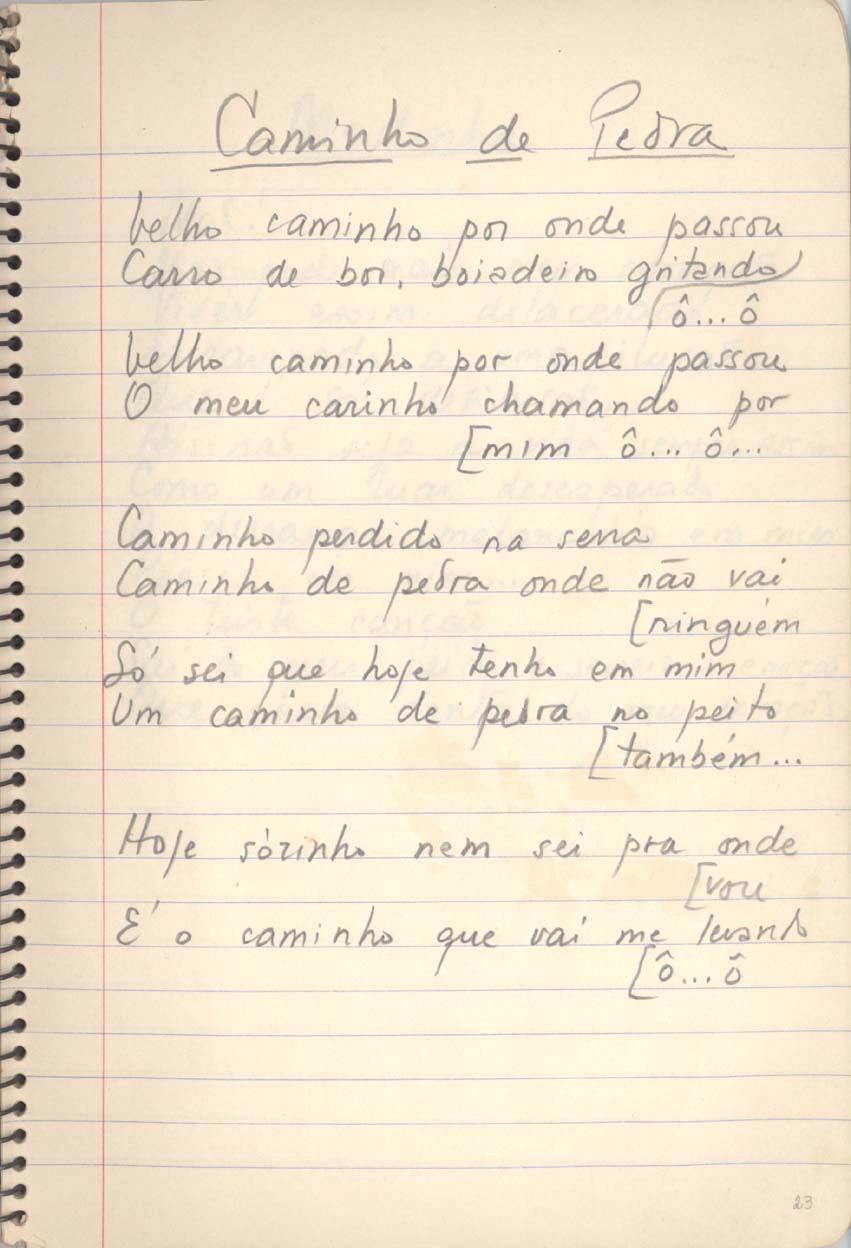 Caminho de Pedra
Velho caminho por onde passou
Carro de boi, boiadeiro gritando
[ô...ô
Velho caminho por onde passou
O meu carinho chamando por
[mim ô... ô...
Caminho perdido na serra
Caminho de pedra onde não vai
[ninguém
Só sei que hoje tenho em mim
Um caminho de pedra no peito
[também...
Hoje sòzinho nem sei pra onde
[vou
É o caminho que vai me levando
[ô...ô
23